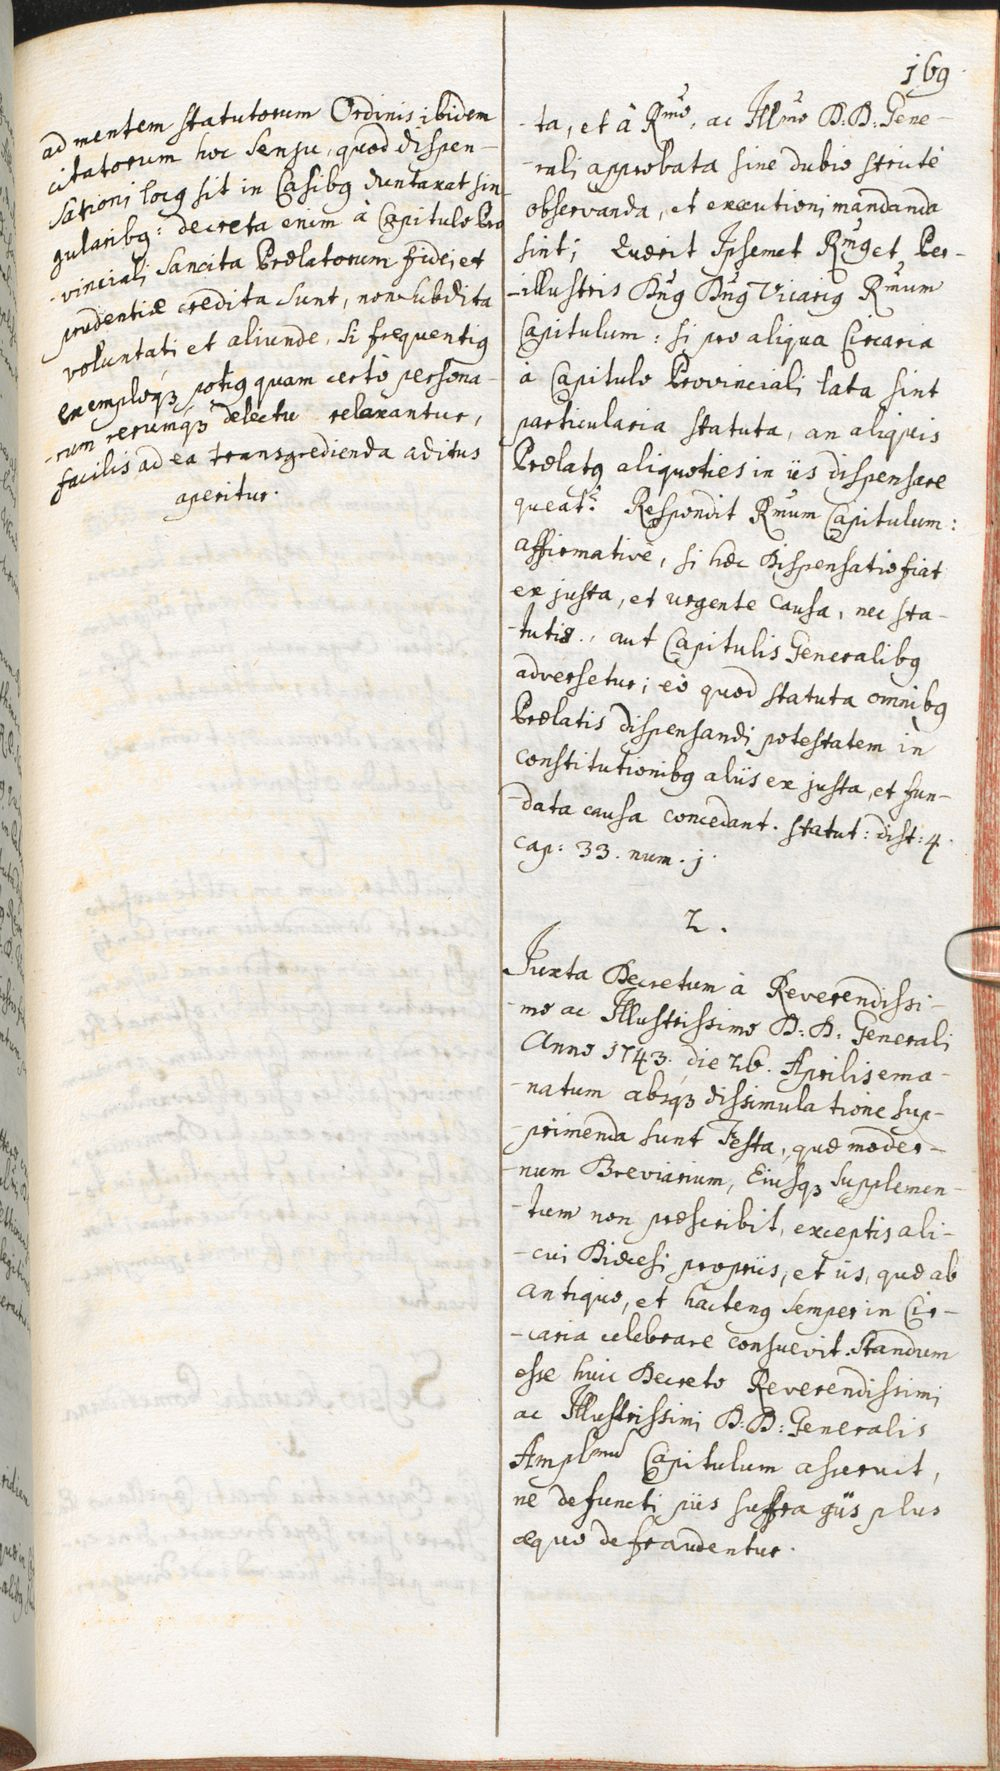 169
ad mentem statutorum Ordinis ibidem
citatorum hoc sensu, quod dispen-
sationi locq sit in Casibq duntaxat sin
gularibq: decreta enim à Capitulo Pro
-vinciali sancita Prælatorum fidei, et
prudentiæ credita sunt, non subdita
voluntati et aliunde, si frequentiq
exemploqꝫ potiq quam certò persona-
-rum rerumqꝫ delectu relaxantur,
facilis ad ea transgredienda aditus
aperitur.
-ta, et à Rmo, ac Illmo D: D: Gene-
-rali approbata sine dubio strictè
observanda, et executioni mandanda
sint; Quærit Ipsemet Rmq et Per-
-illustris Dnq Dnq Vicariq Rmum
Capitulum: si pro aliqua Circaria
à Capitulo Provinciali lata sint
particularia statuta, an aliquis
Prælatq aliquoties in iis dispensare
queat? Respondit Rmum Capitulum:
affirmativè, si hæc Dispensatio fiat
ex justa, et urgente causa, nec sta-
-tutis, aut Capitulis Generalibq
adversetur; eò quod statuta omnibq
Prælatis dispensandi potestatem in
constitutionibq aliis ex justa, et fun-
-data causa concedant. statut: dist: 4.
cap: 33. num. j.
2.
Juxta Decretum à Reverendissi-
-mo ac Illustrissimo D: D: Generali
Anno 1743. die 26. Aprilis ema-
-natum absqꝫ dissimulatione sup-
-primenda sunt Festa, quæ moder-
-num Breviarium, Ejusqꝫ supplemen-
-tum non præscribit, exceptis ali-
-cui Diœcesi propriis, et iis, quæ ab
antiquo, et hactenq semper in Cir-
-caria celebrare consuevit. Standum
esse huic Decreto Reverendissimi
ac Illustrissimi D: D: Generalis
Amplmu Capitulum asseruit,
ne defuncti piis suffragiis plus
æquo defraudentur.